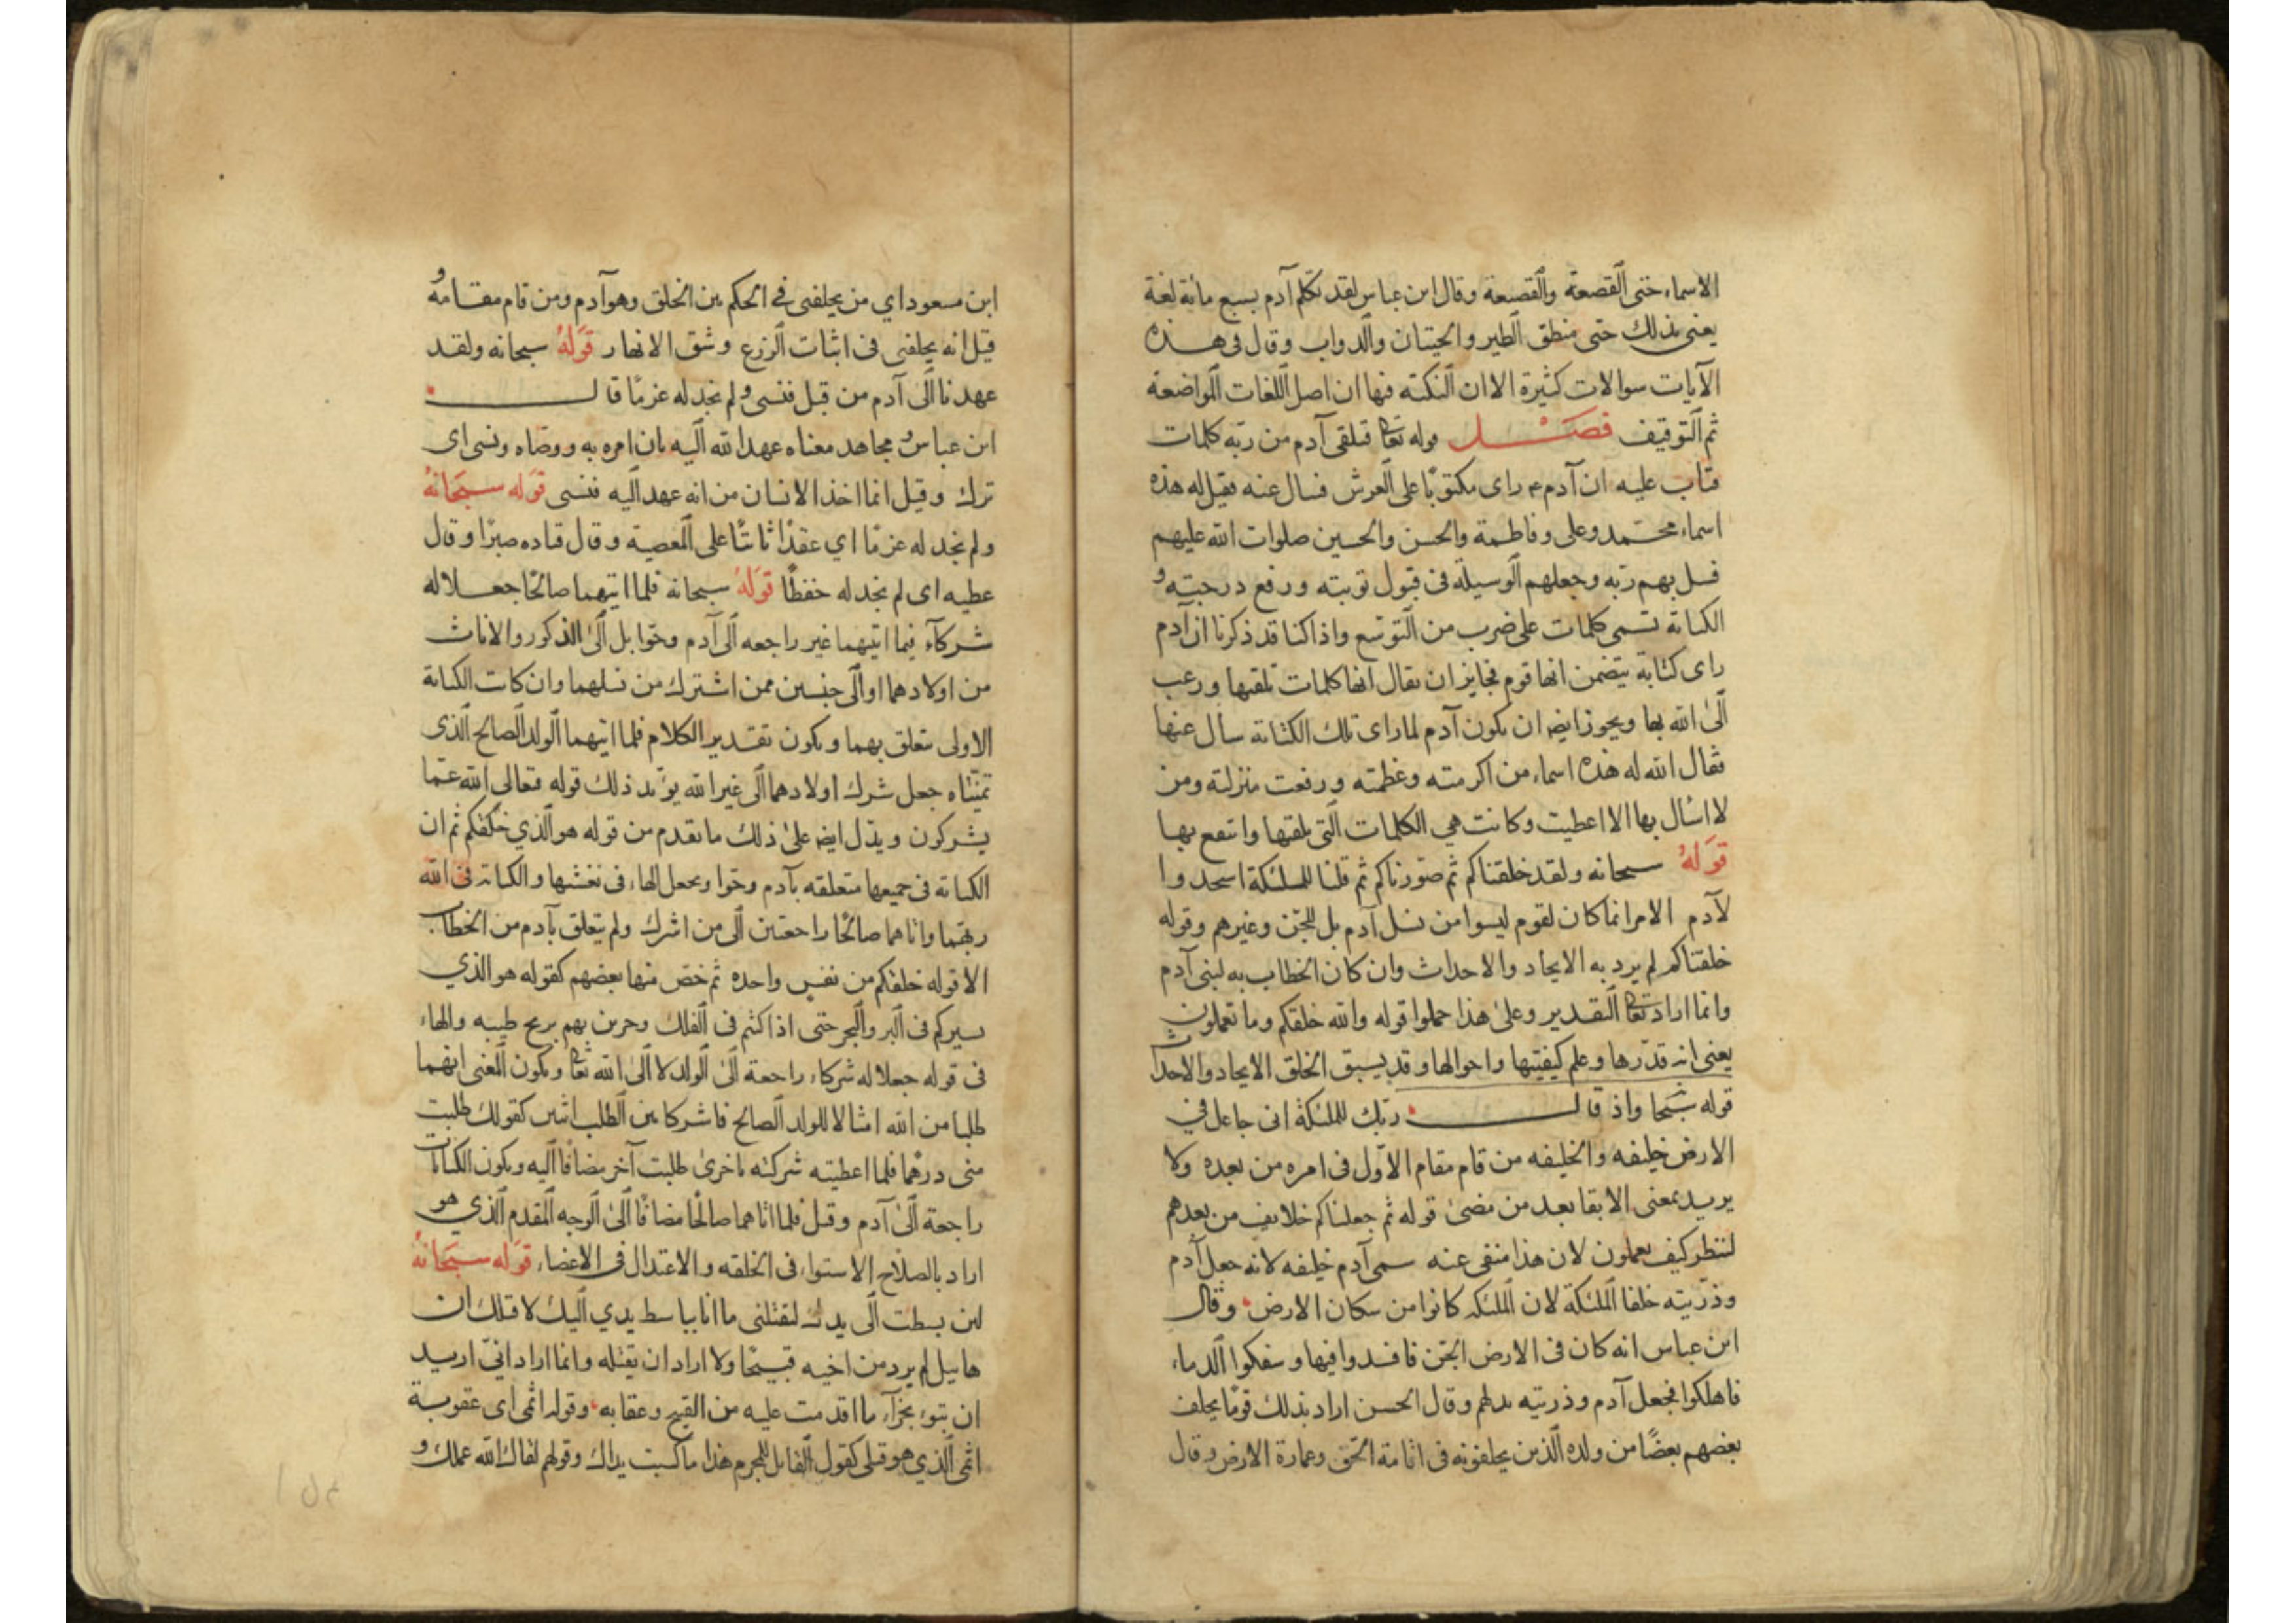 الاسماء حتى القصعة والقصيعة وقال ابن عباس لقد تكلم آدم بسبع مائة لغة
يعني بذلك حتى منطق الطير والحيتان والدواب وقال في هذه
الآيات سوالات كثيرة الا ان النكتة فيها ان اصل اللغات المواضعة
ثم التوقيف فصل قوله تعا فتلقى آدم من ربه كلمات
فتاب عليه ان آدم ع راى مكتوبًا على العرش فسال عنه فقيل له هذه
اسماء محمد وعلى وفاطمة والحسن والحسين صلوات الله عليهم
فسل بهم ربه وجعلهم الوسيلة في قبول توبته ورفع درجته و
الكناية تسمى كلمات على ضرب من التوسع واذا كنا قد ذكرنا ان آدم
راى كتابة يتضمن انها قوم فجايز ان يقال انها كلمات تلقيها ورغب
الى الله بها ويجوز ايض ان يكون آدم لما راى تلك الكتابة سأل عنها
فقال الله له هذه اسماء من اكرمته وعظمته ورفعت منزلته ومن
لا اسال بها الا اعطيت وكانت هي الكلمات التي تلقيها وانتفع بها
قوله سبحانه ولقد خلقناكم ثم صورناكم ثم قلنا للملئكة اسجدوا
لآدم الامر انما كان لقوم ليسوا من نسل آدم بل للجن وغيرهم وقوله
خلقناكم لم يرد به الايجاد والاحداث وان كان الخطاب به لبني آدم
وانما اراد تعا التقدير وعلى هذا حملوا قوله والله خلقكم وما تعملون
يعني انه قدرها وعلم كيفيتها واحوالها وقد يسبق الخلق الايجاد والاحداث
قوله سبحا واذ قال ربك للملئكة اني جاعل في
الارض خليفه والخليفه من قام مقام الاول في امره من بعده ولا
يريد بمعنى الابقا بعد من مضى قوله ثم جعلناكم خلايف من بعدهم
لننظر كيف يعملون لان هذا منفى عنه سمى آدم خليفه لانه جعل آدم
وذريته خلفا الملئكة لان الملئكه كانوا من سكان الارض وقال
ابن عباس انه كان في الارض الجن فافسدوا فيها وسفكوا الدماء
فاهلكوا فجعل آدم وذريته بدلهم وقال الحسن اراد بذلك قومًا يخلف
بعضهم بعضًا من ولده الذين يخلفونه في اقامة الحق وعمارة الارض وقال
ابن مسعود اي من يخلفني في الحكم بين الخلق وهو آدم ومن قام مقامه و
قيل انه يخلفني في اثبات الزرع وشق الانهار قوله سبحانه ولقد
عهدنا الى آدم من قبل فنسى ولم نجد له عزمًا قال
ابن عباس و مجاهد معناه عهد الله اليه بان امره به ووصاه ونسى اى
ترك وقيل انما اخذ الانسان من انه عهد اليه فنسى قوله سبحانه
ولم نجد له عزمًا اي عقدًا ثابتًا على المعصية وقال قتاده صبرًا وقال
عطيه اى لم نجد له حفظًا قوله سبحانه فلما اتيهما صالحًا جعلا له
شركآء فيما اتيهما غير راجعه الى آدم وحوا بل الى الذكور والاناث
من اولادهما او الى جنسين ممن اشترك من نسلهما وان كانت الكناية
الاولى تتعلق بهما ويكون تقدير الكلام فلما اتيهما الولد الصالح الذى
تمنّياه جعل شرك اولادهما الى غير الله يوّيد ذلك قوله فتعالى الله عمّا
يشركون ويدل ايض على ذلك ما تقدم من قوله هو الذي خلقكم ثم ان
الكناية في جميعها متعلقه بآدم وحوا ويجعل الهاء في تغشيها والكناية في الله
ربهما واتاهما صالحًا راجعتين الى من اشرك ولم يتعلق بآدم من الخطاب
الا قوله خلقكم من نفس واحده ثم خص منها بعضهم كقوله هو الذي
يسيركم في البر والبحر حتى اذا كنتم في الفلك وجرين بهم بريح طيبه والهاء
في قوله جعلا له شركاء راجعة الى الولد لا الى الله تعا ويكون المعنى انهما
طلبا من الله امثالا للولد الصالح فاشركا بين الطلب اثنين كقولك طلبت
مني درهما فلما اعطيته شركته باخرى طلبت آخر مضافًا اليه ويكون الكنايات
راجعة الى آدم وقيل فلما اتاهما صالحًا مضافًا الى الوجه المقدم الذي هو
اراد بالصلاح الاستواء في الخلقه والاعتدال في الاعضاء قوله سبحانه
لئن بسطت الى يدك لتقتلني ما انا بباسط يدي اليك لاقتلك ان
هابيل لم يرد من اخيه قبيحًا ولا اراد ان يقتله وانما اراد انيّ اريد
ان تبوء بجزآء ما اقدمت عليه من القبيح وعقابه وقوله اثمي اى عقوبة
اثمي الذي هو قتلي كقول القائل للمجرم هذا ما كسبت يداك وقولهم لقاك الله عملك و